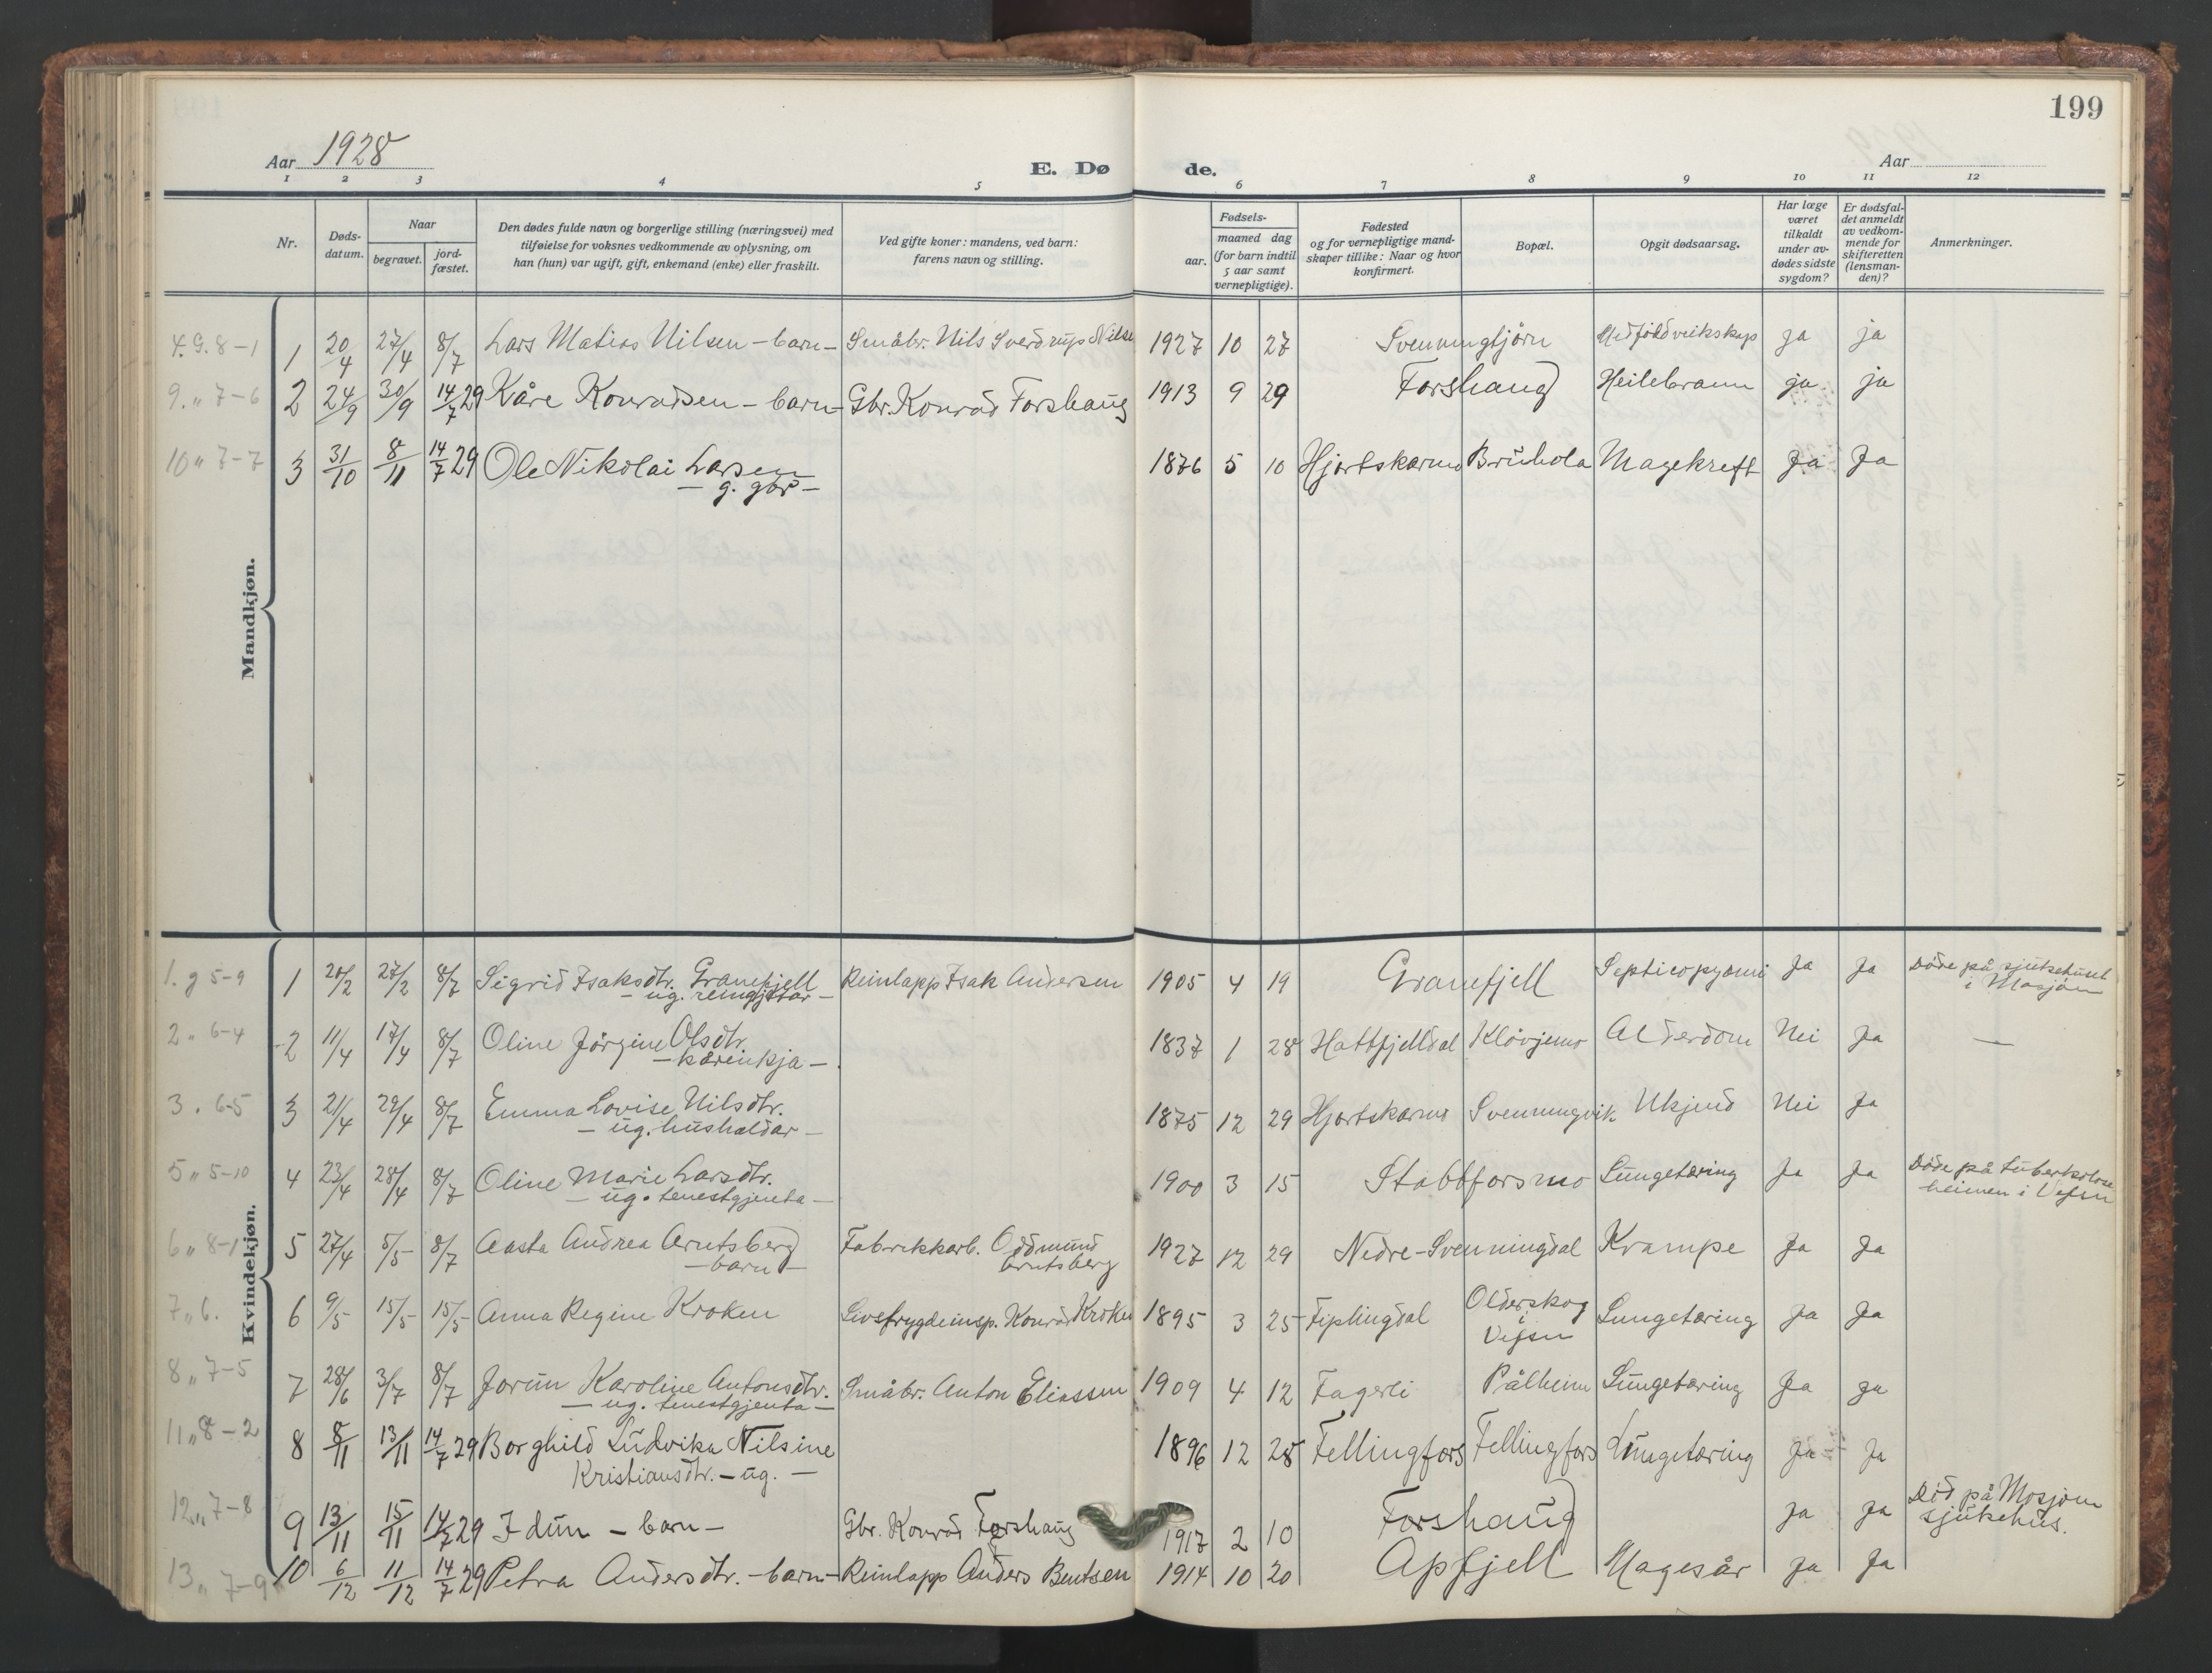 199
Aar 1928
E. Dø de.
Aar
1 2 3 4 5 6 7 8 9 10 11 12
Nr. | Døds-datum. | Naar begravet. | jord-fæstet. | Den dødes fulde navn og borgerlige stilling (næringsvei) med tilføielse for voksnes vedkommende av oplysning, om han (hun) var ugift, gift, enkemand (enke) eller fraskilt. | Ved gifte koner: mandens, ved barn: farens navn og stilling. | Fødsels- aar. | maaned dag (for barn indtil 5 aar samt vernepligtige). | Fødested og for vernepligtige mand-skaper tillike: Naar og hvor konfirmert. | Bopæl. | Opgit dødsaarsag. | Har læge været tilkaldt under av-dødes sidste sygdom? | Er dødsfal-det anmeldt av vedkom-mende for skifteretten (lensman-den)? | Anmerkninger.
Mandkjøn.
4. 9. 8-1 1 20/4 27/4 8/7 Lars Matias Nilsen - barn - Småbr. Nils Sverdrup Nilsen 1927 10 27 Svenningtjörn Medföddveikskap ja ja
9. " 7-6 2 24/9 30/9 14/7 29 Kåre Konradsen - barn - Gbr. Konrad Forshaug 1913 9 29 Forshaug Heilebrann ja ja
10 " 7-7 3 31/10 8/11 14/7 29 Ole Nikolai Larsen 1876 5 10 Hjortskarmo Bruhola Magekreft Ja Ja
- g. gbr -
Kvindekjøn.
1. g 5-9 1 20/2 27/2 8/7 Sigrid Isaksdtr. Granefjell Reinlapp Isak Andersen 1905 4 19 Granefjell Septicopyæmi Ja Ja Döde på sjukehuset
- ug. reingjetar - i Mosjöen
2 " 6-4 2 11/4 17/4 8/7 Oline Jörgine Olsdtr. 1837 1 28 Hattfjelldal Klövjemo Alderdom Nei Ja —
- kårenkja -
3 . 6-5 3 21/4 29/4 8/7 Emma Lovise Nilsdtr. 1875 12 29 Hjortskarmo Svenningvik Ukjend Nei Ja
- ug. hushaldar -
5 " 5-10 4 23/4 28/4 8/7 Oline Marie Larsdtr. 1900 3 15 Stabbforsmo Lungetæring Ja Ja Döde på tuberkulose
- ug. tenestgjenta - heimen i Vefsn
6 " 8-1 5 27/4 5/5 8/7 Aasta Andrea Arntsberg Fabrikkarb. Oddmund 1927 12 29 Nedre-Svenningdal Krampe Ja Ja
- barn - Arntsberg
7 " 6. 6 9/5 15/5 15/5 Anna Regine Kroken Livstrygdeinsp. Konrad Kroken 1895 3 25 Fiplingdal Olderskog i Vefsn Lungetæring Ja Ja
8 " 7-5 7 28/6 3/7 8/7 Jorun Karoline Antonsdtr. Småbr. Anton Eliassen 1909 4 12 Fagerli Pålheim Lungetæring Ja ja
- ug. tenestgjenta -
11 " 8-2 8 8/11 13/11 14/7 29 Borghild Ludvika Nilsine 1896 12 28 Fellingfors Fellingfors Lungetæring Ja Ja
Kristiansdtr. - ug. -
12 " 7-8 9 13/11 15/11 14/7 29 Idun - barn - Gbr. Konrad Forshaug 1917 2 10 Forshaug ja ja Död på Mosjöen sjukehus.
13 " 7-9 10 6/12 11/12 14/7 29 Petra Andersdtr. - barn - Reinlapp Anders Bentsen 1914 10 20 Apfjell Magesår ja Ja